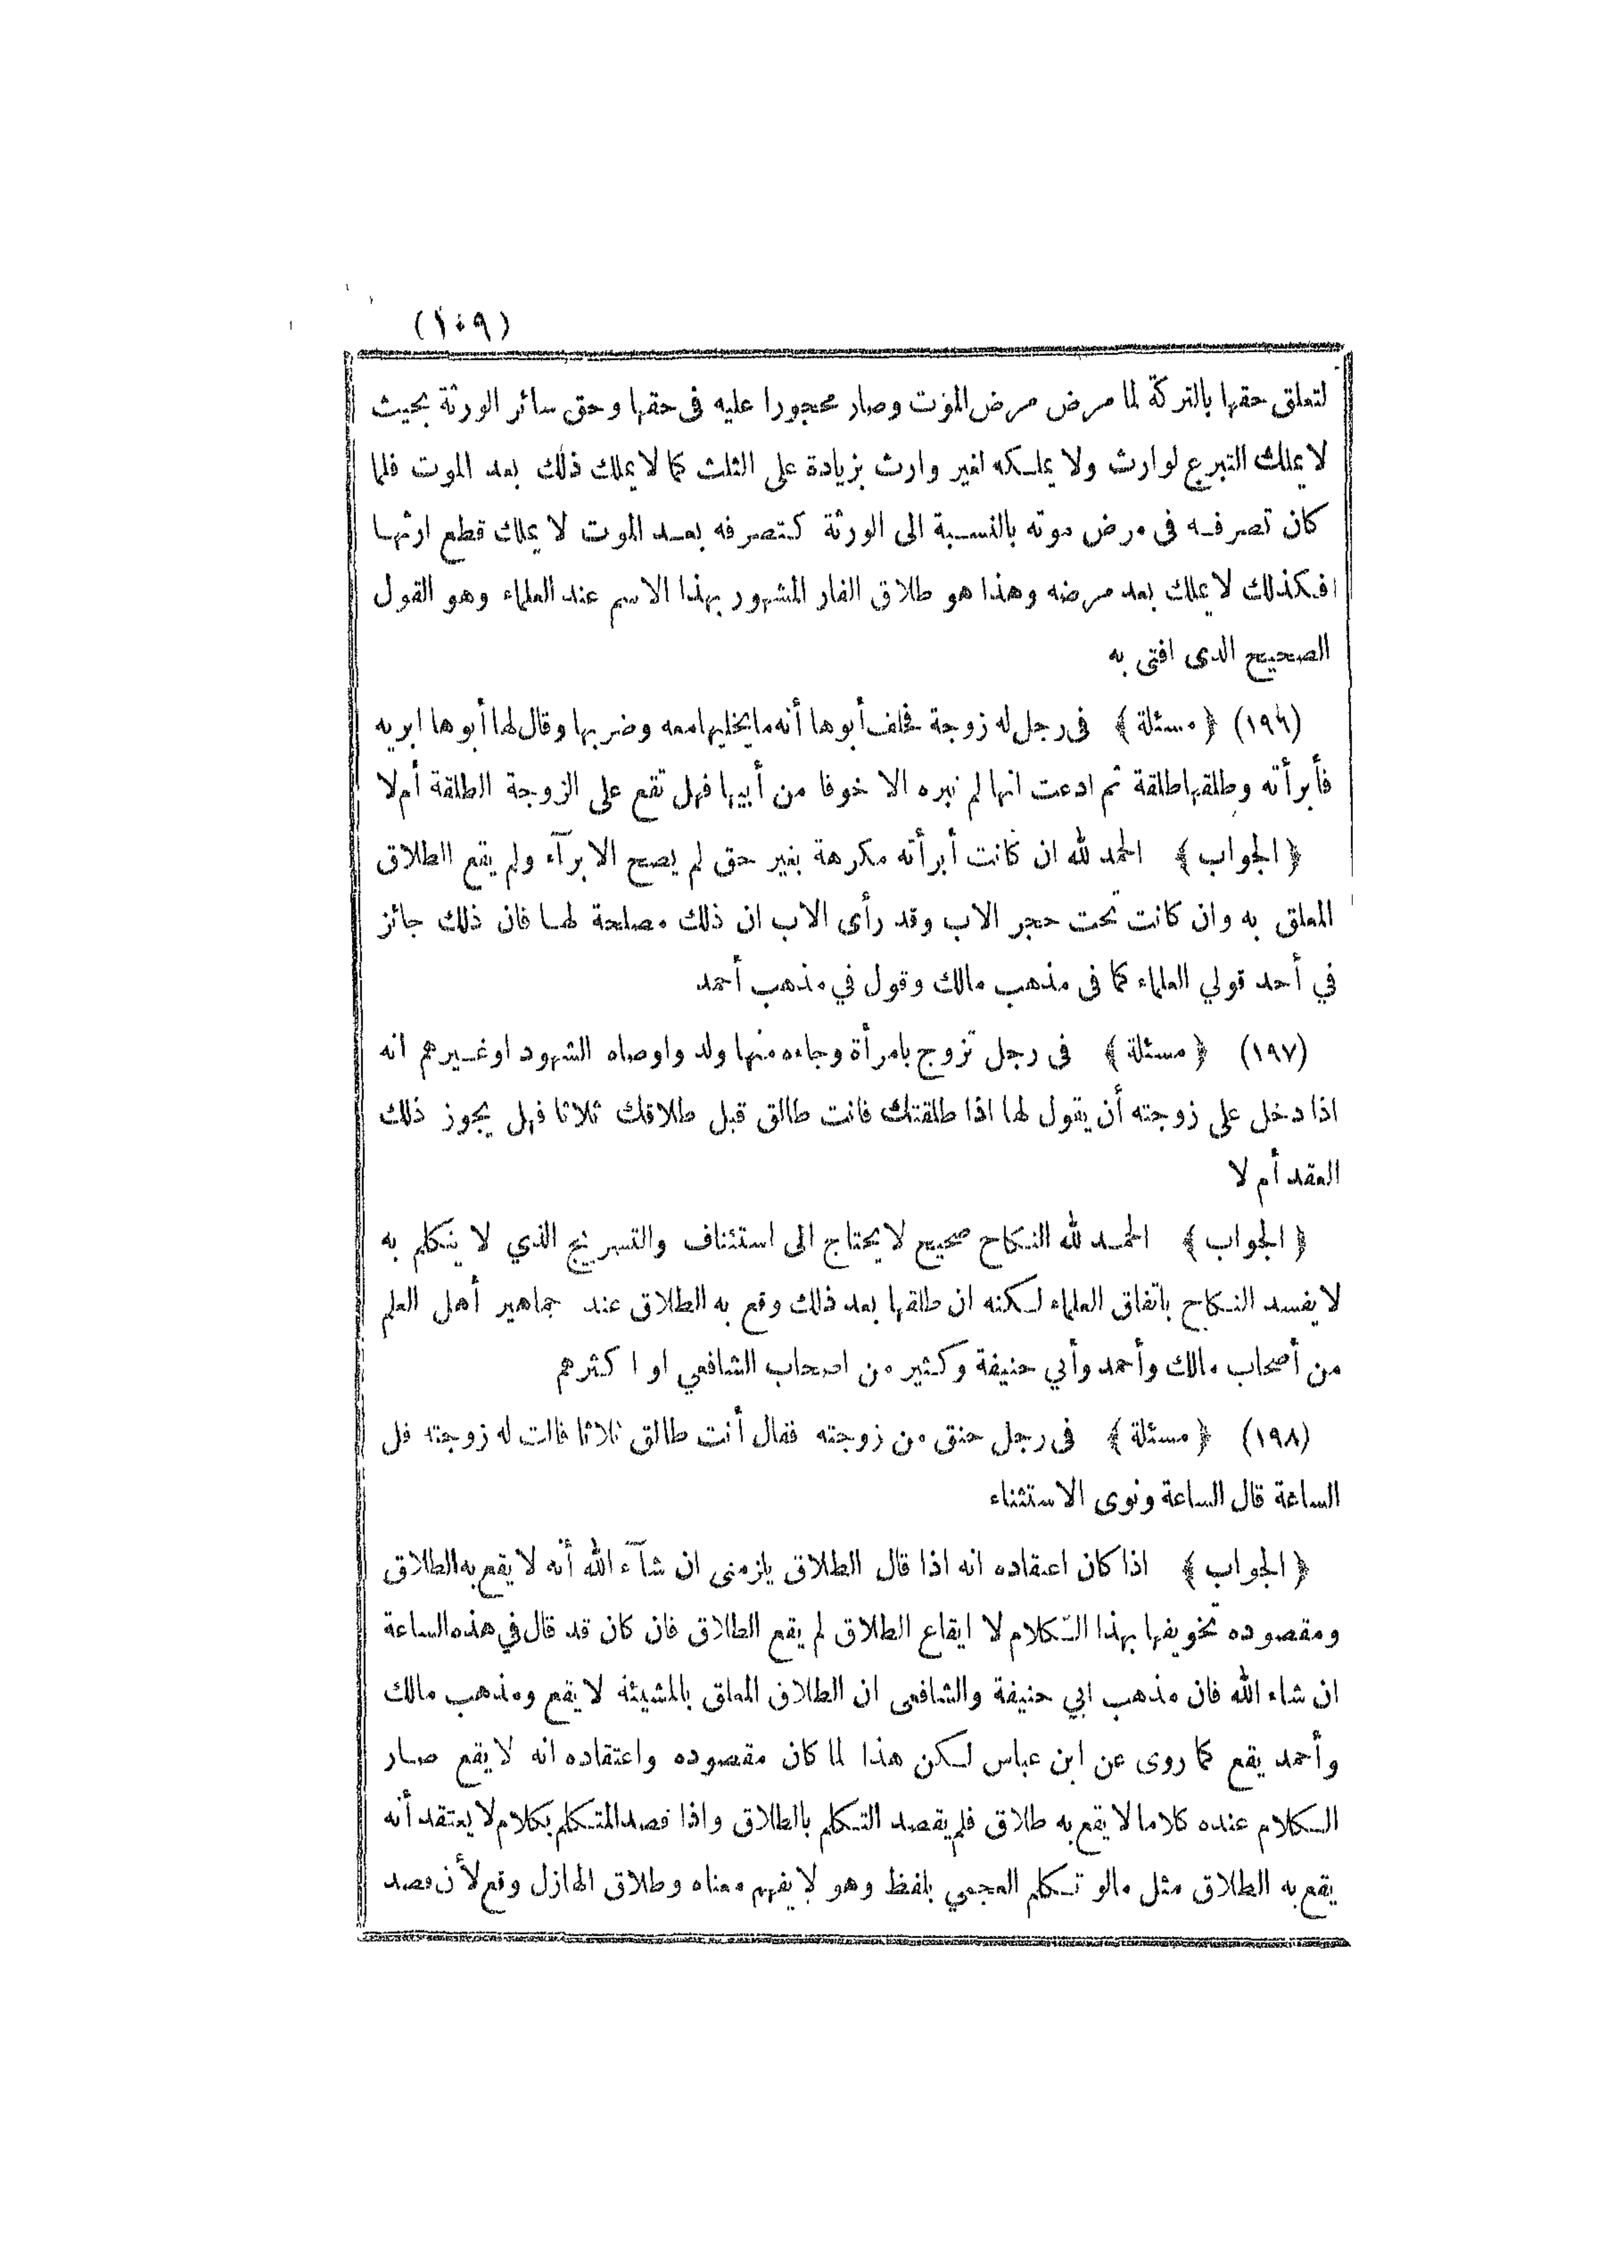 (١٠٩)
لتعلق حقها بالتركة لما مرض مرض الموت وصار محجورا عليه فى حقها وحق سائر الورثة بحيث
لا يملك التبرع لوارث ولا يملكه لغير وارث بزيادة على الثلث كما لا يملك ذلك بعد الموت فلما
كان تصرفه فى مرض موته بالنسبة الى الورثة كتصرفه بعد الموت لا يملك قطع ارثها
فكذلك لا يملك بعد مرضه وهذا هو طلاق الفار المشهور بهذا الاسم عند العلماء وهو القول
الصحيح الذى افتى به
(١٩٦) ﴿ مسئلة ﴾ فى رجل له زوجة فحلف أبوها أنه ما يخليها معه وضربها وقال لها أبوها ابريه
فأبرأته وطلقها طلقة ثم ادعت انها لم تبره الا خوفا من أبيها فهل تقع على الزوجة الطلقة أم لا
﴿ الجواب ﴾ الحمد لله ان كانت أبرأته مكرهة بغير حق لم يصح الابرآء ولم يقع الطلاق
المعلق به وان كانت تحت حجر الاب وقد رأى الاب ان ذلك مصلحة لها فان ذلك جائز
في أحد قولي العلماء كما فى مذهب مالك وقول في مذهب أحمد
(١٩٧) ﴿ مسئلة ﴾ فى رجل تزوج بامرأة وجاءه منها ولد واوصاه الشهود او غيرهم انه
اذا دخل على زوجته أن يقول لها اذا طلقتك فانت طالق قبل طلاقك ثلاثا فهل يجوز ذلك
العقد أم لا
﴿ الجواب ﴾ الحمد لله النكاح صحيح لا يحتاج الى استئناف والتسريج الذي لا يتكلم به
لا يفسد النكاح باتفاق العلماء لكنه ان طلقها بعد ذلك وقع به الطلاق عند جماهير أهل العلم
من أصحاب مالك وأحمد وأبي حنيفة وكثير من اصحاب الشافعي او اكثرهم
(١٩٨) ﴿ مسئلة ﴾ فى رجل حنق من زوجته فقال أنت طالق ثلاثا قالت له زوجته قل
الساعة قال الساعة ونوى الاستثناء
﴿ الجواب ﴾ اذا كان اعتقاده انه اذا قال الطلاق يلزمنى ان شآء الله أنه لا يقع به الطلاق
ومقصوده تخويفها بهذا الكلام لا ايقاع الطلاق لم يقع الطلاق فان كان قد قال في هذه الساعة
ان شاء الله فان مذهب ابي حنيفة والشافعى ان الطلاق المعلق بالمشيئة لا يقع ومذهب مالك
وأحمد يقع كما روى عن ابن عباس لكن هذا لما كان مقصوده واعتقاده انه لا يقع صار
الكلام عنده كلاما لا يقع به طلاق فلم يقصد التكلم بالطلاق واذا قصد المتكلم بكلام لا يعتقد أنه
يقع به الطلاق مثل مالو تكلم العجمي بلفظ وهو لا يفهم معناه وطلاق الهازل وقع لأن قصد